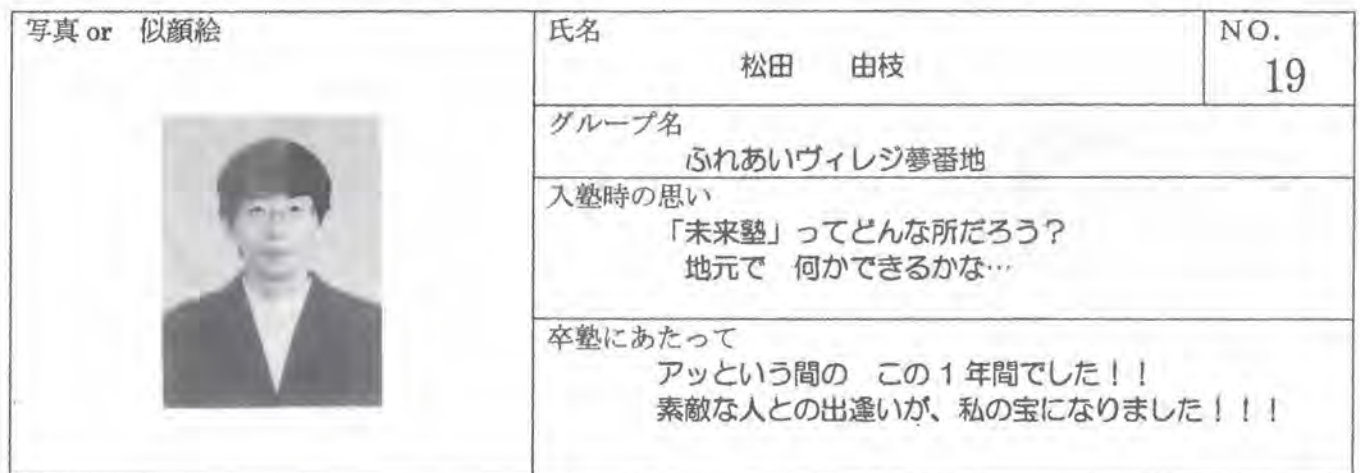 写真 or 似顔絵
氏名
松田 由枝
NO.
19
グループ名
ふれあいヴィレジ夢番地
入塾時の思い
「未来塾」ってどんな所だろう？
地元で 何かできるかな…
卒塾にあたって
アッという間の この１年間でした！！
素敵な人との出逢いが、私の宝になりました！！！